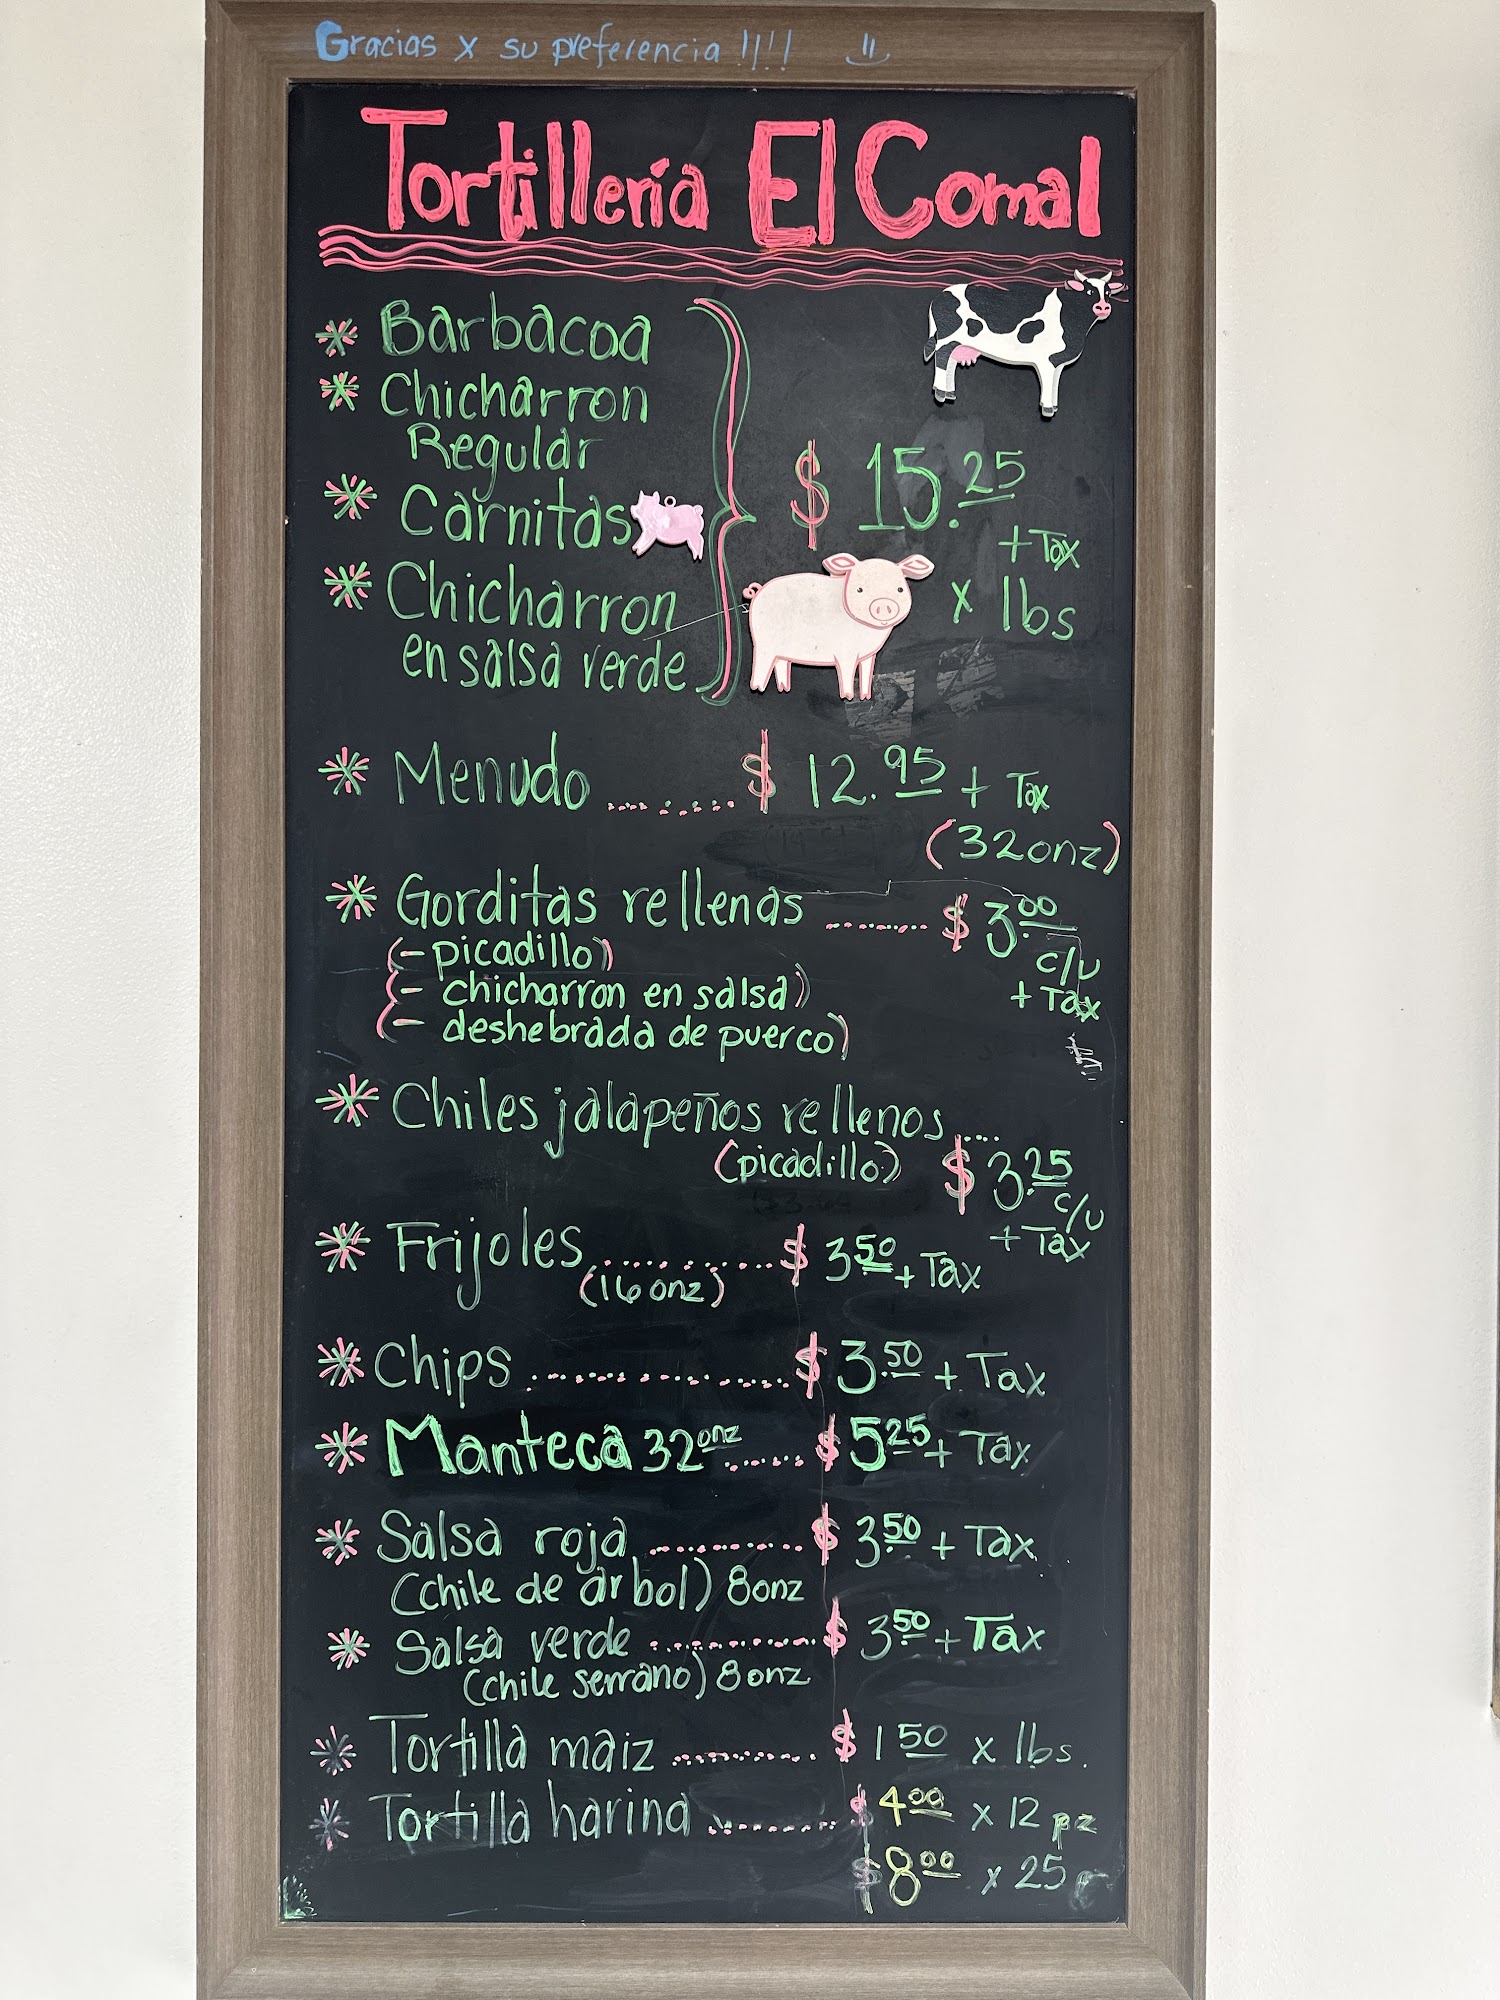 Gracias x su preferencia !!!!
Tortillería El Comal
* Barbacoa
* Chicharron
Regular
* Carnitas
* Chicharron
en salsa verde
$ 15.25
+ Tax
x lbs
* Menudo ........ $ 12.95 + Tax
(32onz)
* Gorditas rellenas ........ $ 3.00
c/u
+ Tax
(- picadillo)
(- chicharron en salsa)
(- deshebrada de puerco)
* Chiles jalapeños rellenos....
(picadillo) $ 3.25
c/u
+ Tax
* Frijoles ............ $ 3.50 + Tax
(16onz)
* Chips ............... $ 3.50 + Tax
* Manteca 32onz ....... $ 5.25 + Tax
* Salsa roja ........... $ 3.50 + Tax
(chile de árbol) 8onz
* Salsa verde ............ $ 3.50 + Tax
(chile serrano) 8onz
* Tortilla maiz ........... $ 1 50 x lbs.
* Tortilla harina ........... $ 4.00 x 12 pz
$ 8.00 x 25